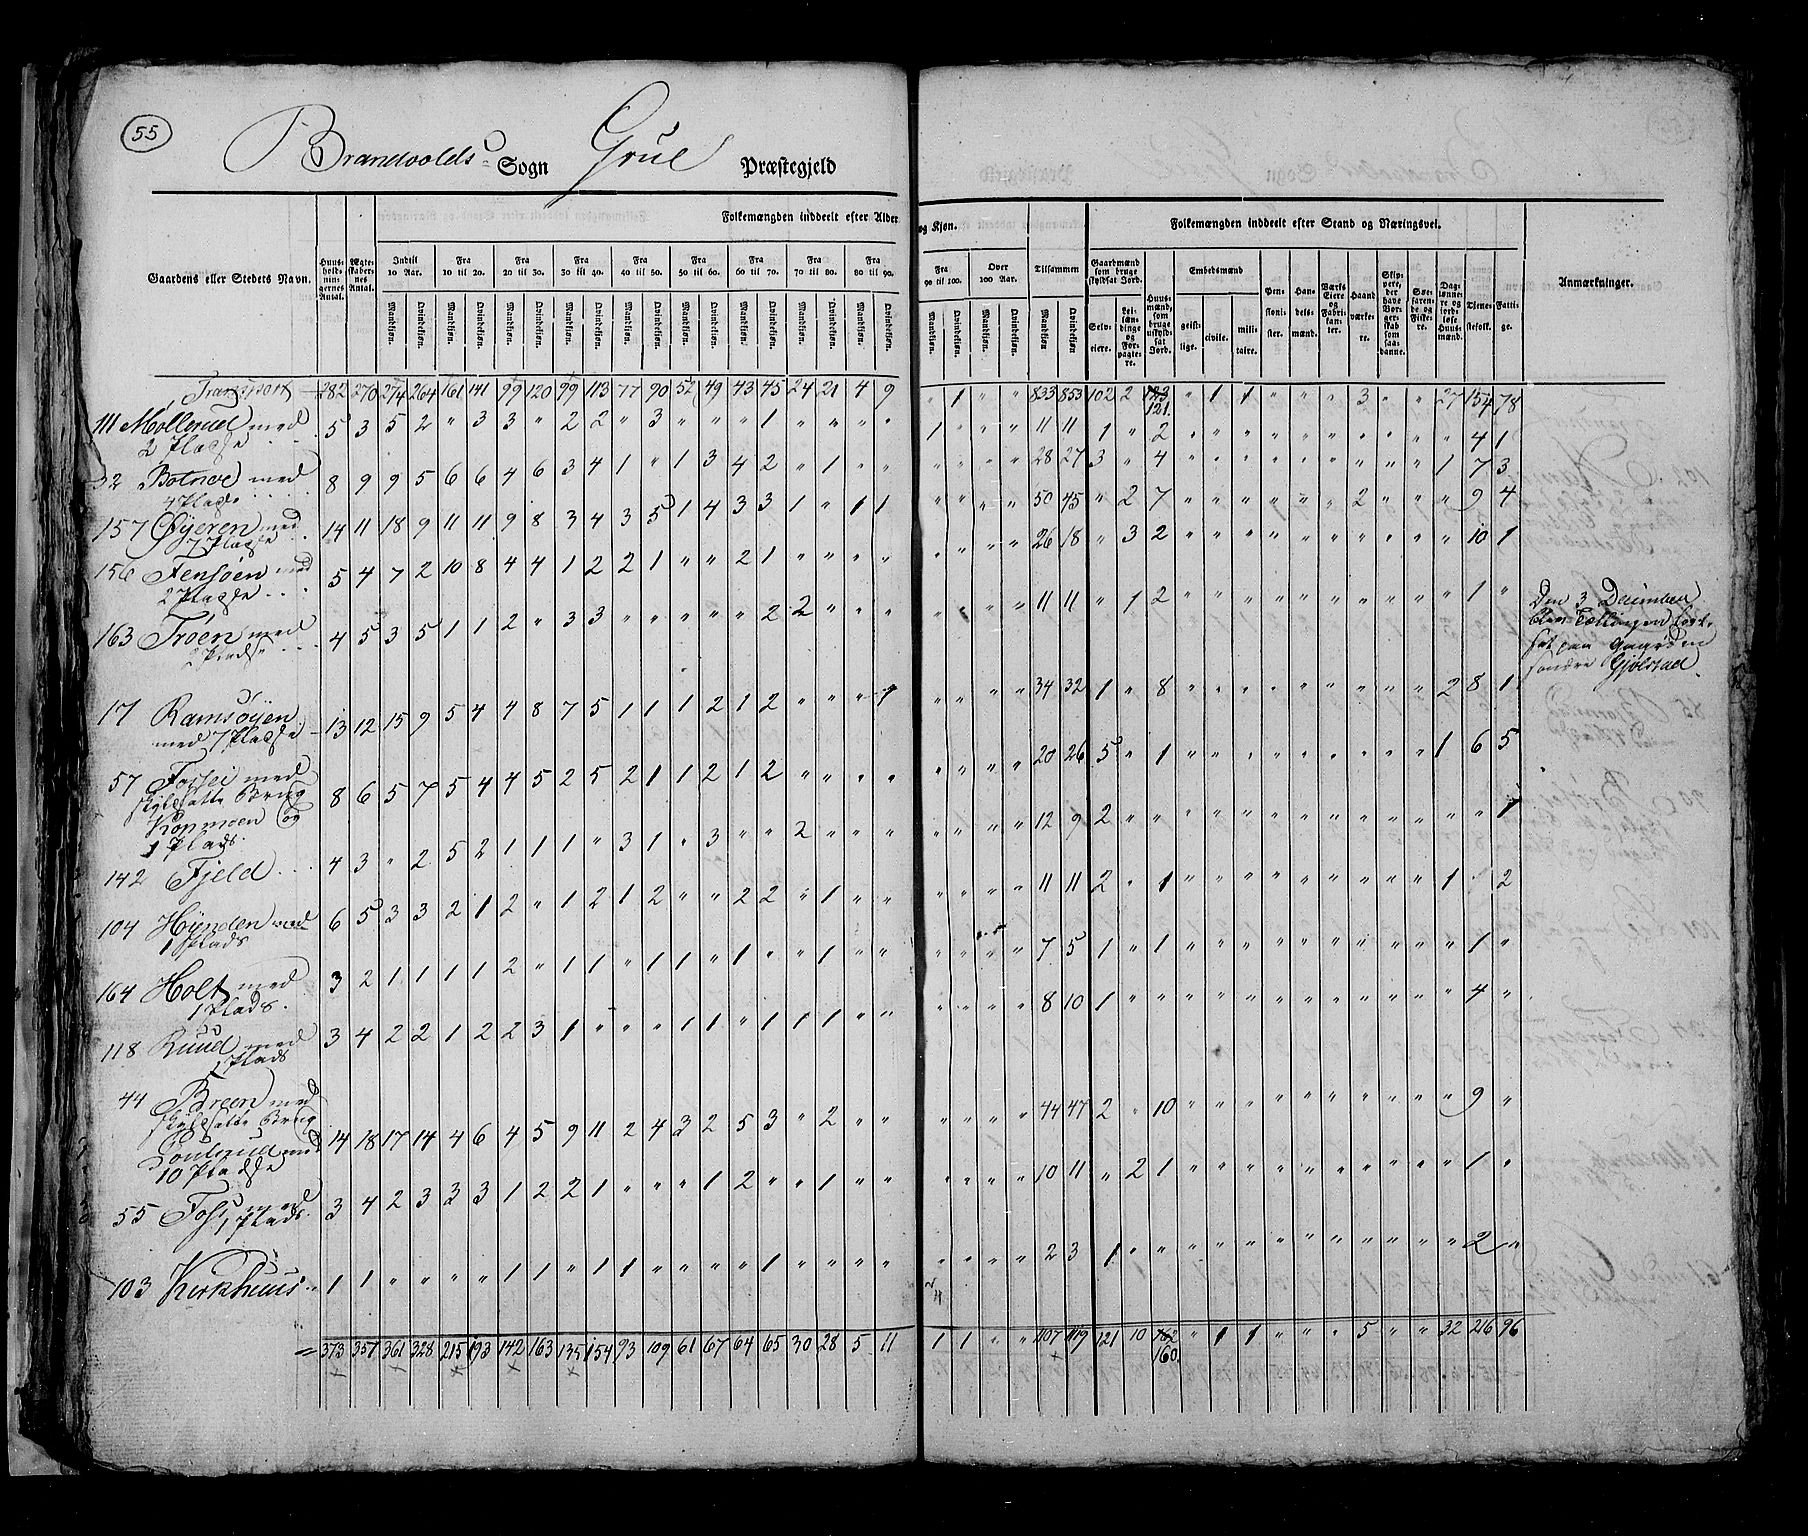 55
Brandvolds Sogn Grue Præstegjeld
Folkemængden inddeelt efter Alder og Kjøn. Folkemængden inddeelt efter Stand og Næringsvei.
Gaardens eller Stedets Navn. Huusholdningernes Antal. Ægteskabernes Antal. Indtil 10 Aar. Fra 10 til 20. Fra 20 til 30. Fra 30 til 40. Fra 40 til 50. Fra 50 til 60. Fra 60 til 70. Fra 70 til 80. Fra 80 til 90. Fra 90 til 100. Over 100 Aar. Tilsammen Gaardmænd som bruge skyldsat Jord. Huusmænd, som bruge uskyldsat Jord. Embedsmænd Pensionister. Handelsmænd. Værks Eiere og Fabrikanter. Haandværkere. Skippere, der have Borgerskab som saadanne. Søefarende og Fiskere. Daglønnere og jordløse Huusmænd. Tjenestefolk. Fattige. Anmærkninger.
Mandkiøn. Qvindekiøn. Mandkiøn. Qvindekiøn. Mandkiøn. Qvindekiøn. Mandkiøn. Qvindekiøn. Mandkiøn. Qvindekiøn. Mandkiøn. Qvindekiøn. Mandkiøn. Qvindekiøn. Mandkiøn. Qvindekiøn. Mandkiøn. Qvindekiøn. Mandkiøn. Qvindekiøn. Mandkiøn. Qvindekiøn. Mandkiøn Qvindekiøn. Selveiere. Leilændinge og Forpagtere. geistlige. civile. militaire.
Transport 282 270 274 264 161 141 99 120 99 113 77 90 52 49 43 45 24 21 4 9 " 1 " " 833 853 102 2 123 " 1 1 " " " 3 " " 27 154 78
121.
111 Mollerud med 5 3 5 2 " 3 3 " 2 2 " 3 " " " 1 " " " " 1 " " " 11 11 1 " 2 " " " " " " " " " " 4 1
2 Pladse
32 Botner med 8 9 9 5 6 6 4 6 3 4 1 " 1 3 4 2 " 1 " " " " " " 28 27 3 " 4 " " " " " " " " " 1 7 3
4 Pladse
157 Øyeren med 14 11 18 9 11 11 9 8 3 4 3 5 1 4 3 3 1 " 1 1 " " " " 50 45 " 2 7 " " " " " " 2 " " " 9 4
7 Pladse
156 Tensøen med 5 4 7 2 10 8 4 4 1 2 2 1 " " 2 1 " " " " " " " " 26 18 " 3 2 " " " " " " " " " " 10 1
2 Pladse
163 Trøen med 4 5 3 5 1 1 2 " 3 3 " " " " " 2 2 " " " " " " " 11 11 " 1 2 " " " " " " " " " " 1 "
2 Pladse
Den 3 December
blev Tellingen fort-
sat paa Gaarden
søndre Gjølstad
17 Ramsøyen 13 12 15 9 5 4 4 8 7 5 1 1 1 2 1 2 " " " 1 " " " " 34 32 1 " 8 " " " " " " " " " 2 8 1
med 7 Pladse
57 Fossei med 8 6 5 7 5 4 4 5 2 5 2 1 1 2 1 2 " " " " " " " " 20 26 5 " 1 " " " " " " " " " 1 6 5
skyldsatte Brug
Kopmoen og
1 Plads
142 Fjeld 4 3 " 2 5 2 1 1 1 " 3 1 " 3 " " 2 " " " " " " " 12 9 2 " " " " " " " " " " " " " 1
104 Hynden med 6 5 3 3 2 1 2 " 1 2 1 2 " " 2 2 " 1 " " " " " " 11 11 2 " 1 " " " " " " " " " 1 " 2
1 Plads
164 Holt med 3 2 1 1 1 1 2 " 1 1 " 1 1 " 1 " " 1 " " " " " " 7 5 1 " 1 " " " " " " " " " " 1 "
1 Plads.
118 Ruud med 3 4 2 2 1 2 2 3 1 " " " 1 1 " 1 1 1 " " " " " " 8 10 1 " " " " " " " " " " " " 4 "
1 Plads
44 Breen med 14 18 17 14 4 6 4 5 9 11 2 4 3 2 5 3 " 2 " " " " " " 44 47 2 " 10 " " " " " " " " " " 9 "
skyldsatte Brug
10 Pladse
55 Foss med 3 4 2 3 3 3 1 2 2 1 " " " 1 2 " " 1 " " " " " " 10 11 " 2 1 " " " " " " " " " " 1 "
1 Plads.
103 Kirkhuus 1 1 " " " " 1 1 " 1 1 " " " " 1 " " " " " " " " 2 3 1 " " " " " " " " " " " " 2 "
= 373 357 361 328 215 193 142 163 135 154 93 109 61 67 64 65 30 28 5 11 1 1 " " 1107 1119 121 10 162 " 1 1 " " " 5 " " 32 216 96
160.